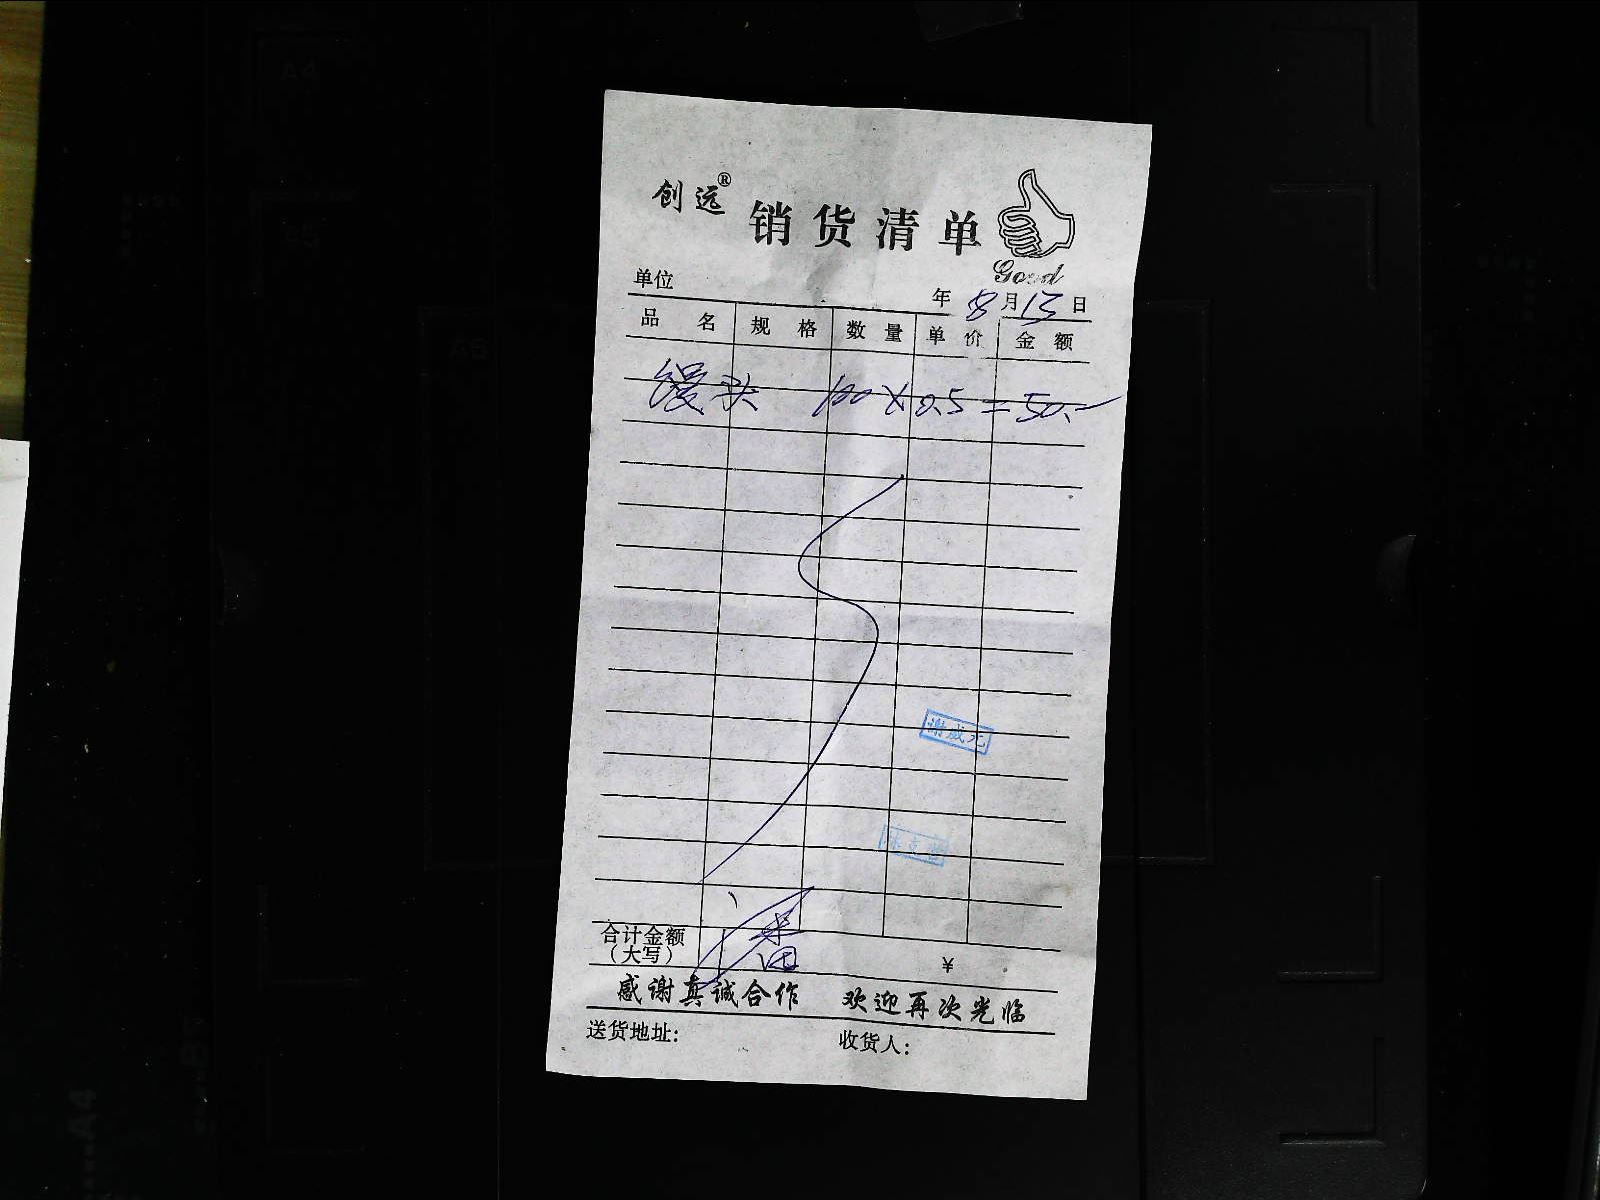 创远® 销货清单
Good
单位 年 8 月 15 日
品名 规格 数量 单价 金额
馒头 100 × 0.5 = 50.-
谢成元
合计金额
(大写) ¥
感谢真诚合作 欢迎再次光临
送货地址: 收货人:
A4
A5
A6
A4